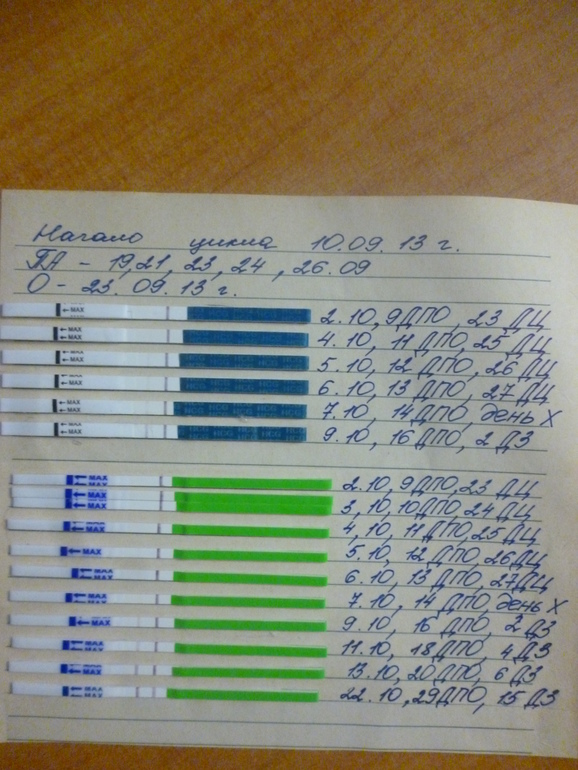 Начало цикла 10.09.13 г.
ПА - 19,21, 23, 24, 26.09
О - 23.09.13 г.
← MAX HCG 2.10, 9ДПО, 23 ДЦ
← MAX 4.10, 11 ДПО, 25 ДЦ
← MAX 5.10, 12 ДПО, 26 ДЦ
← MAX HCG 6.10, 13 ДПО, 27 ДЦ
← MAX HCG HCG 7.10, 14 ДПО, день X
← MAX HCG 9.10, 16 ДПО, 2 ДЗ
← MAX 2.10, 9ДПО, 23 ДЦ
← MAX 3.10, 10ДПО, 24 ДЦ
← MAX 4.10, 11 ДПО, 25 ДЦ
← MAX 5.10, 12 ДПО, 26ДЦ
← MAX 6.10, 13 ДПО, 27ДЦ
← MAX 7.10, 14 ДПО, день X
← MAX 9.10, 16 ДПО, 2 ДЗ
← MAX 11.10, 18ДПО, 4 ДЗ
← MAX 13.10, 20ДПО, 6 ДЗ
← MAX 22.10, 29ДПО, 15 ДЗ